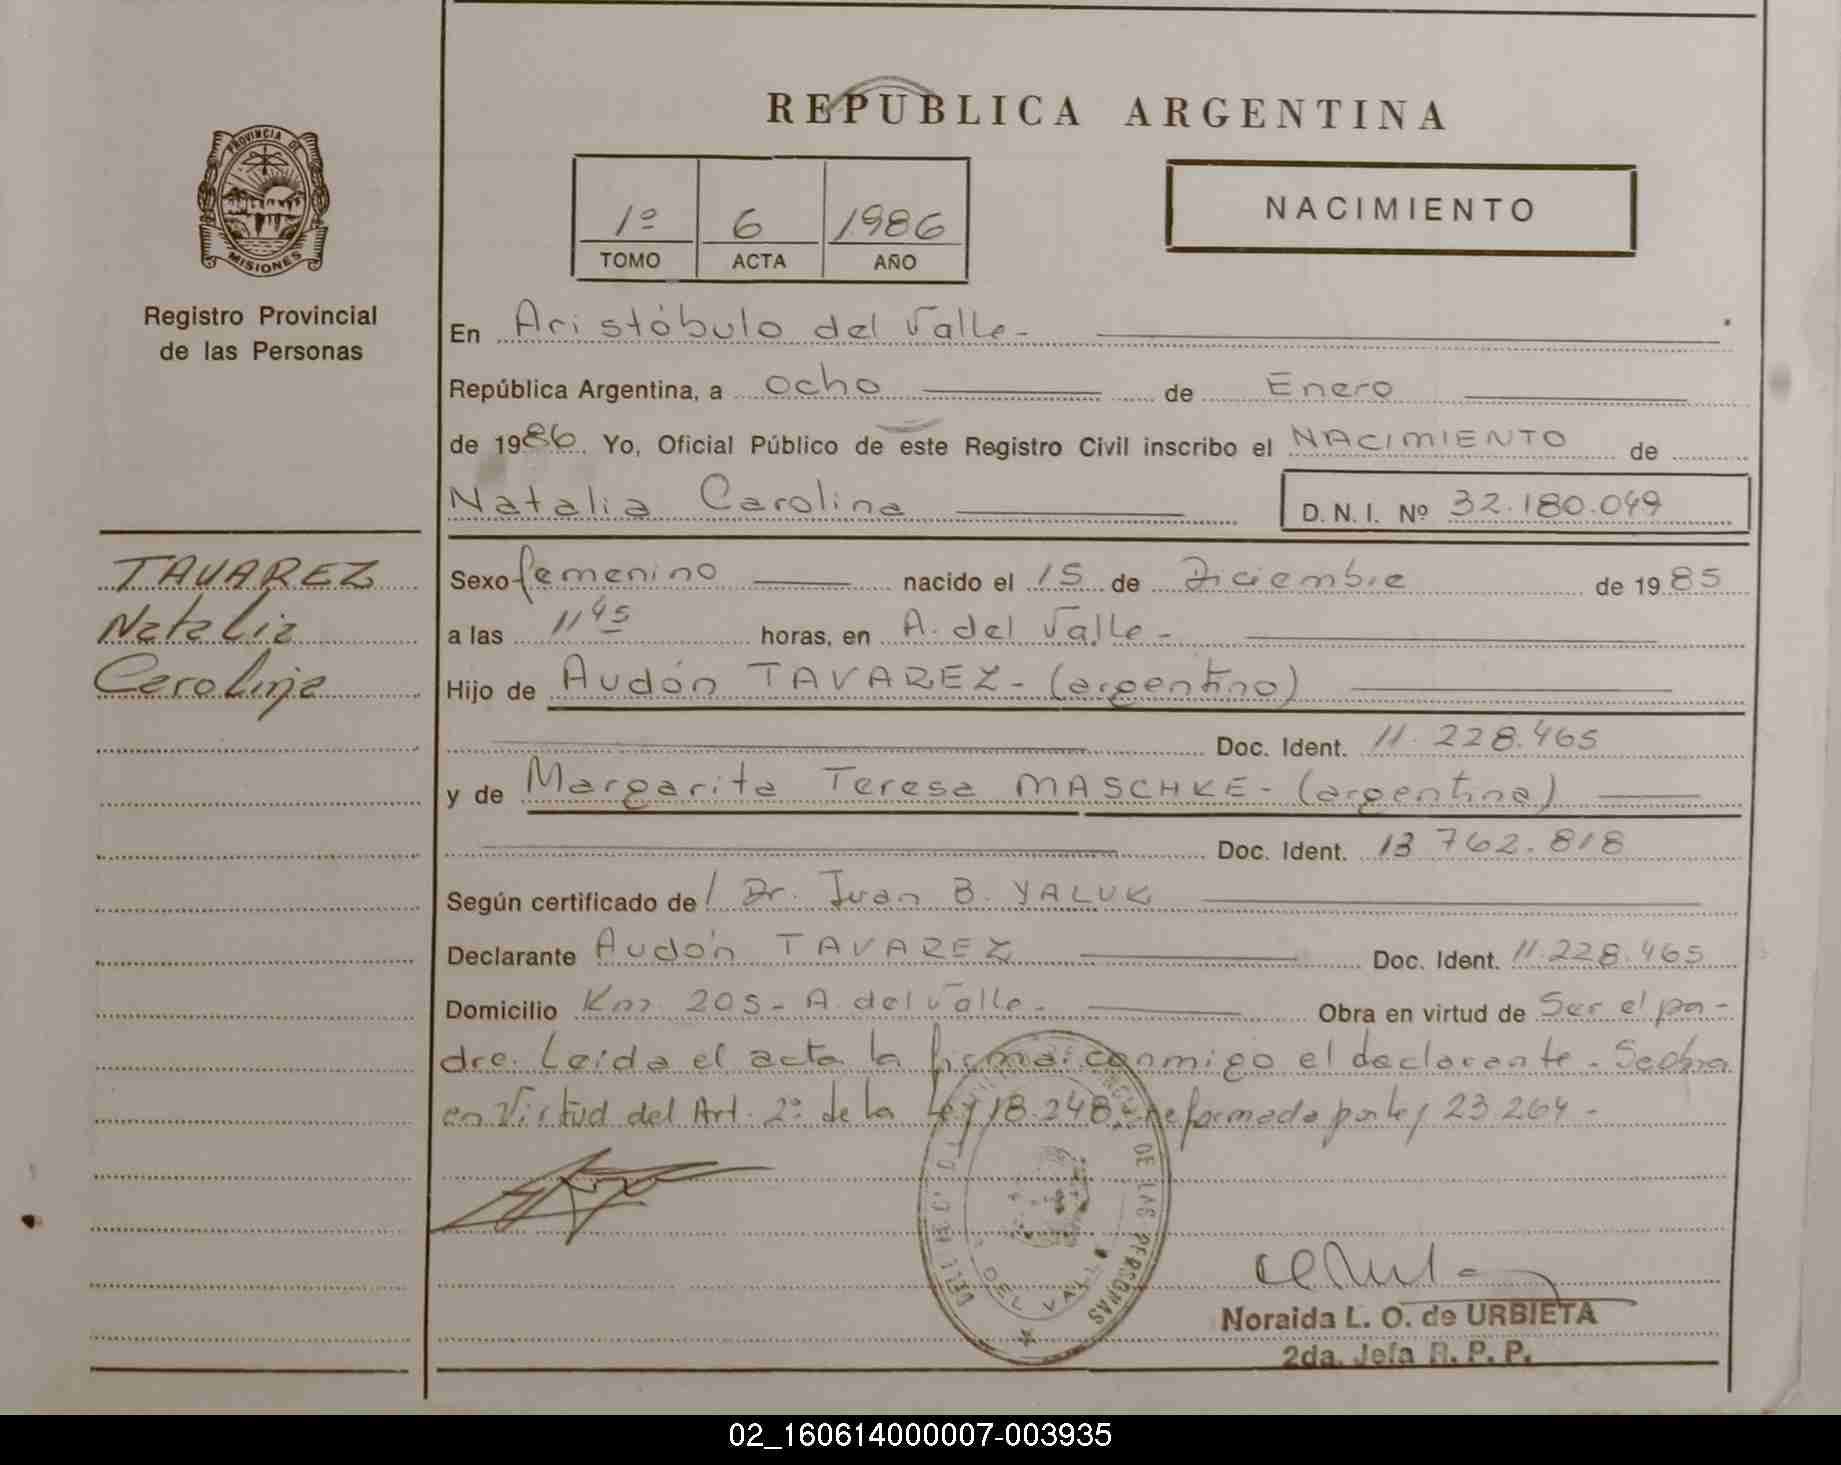 REPUBLICA ARGENTINA
PROVINCIA DE
MISIONES
Registro Provincial
de las Personas
1º 6 1986
TOMO ACTA AÑO
NACIMIENTO
En Aristóbulo del Valle -
República Argentina, a ocho de Enero
de 1986. Yo, Oficial Público de este Registro Civil inscribo el NACIMIENTO de
Natalia Carolina D. N. I. Nº 32.180.049
TAVAREZ
Natalia
Carolina
Sexo femenino nacido el 15 de Diciembre de 1985
a las 11 45 horas, en A. del Valle -
Hijo de Audón TAVAREZ - (argentino)
Doc. Ident. 11.228.465
y de Margarita Teresa MASCHKE - (argentina)
Doc. Ident. 13 762.818
Según certificado de / Dr. Juan B. YALUK
Declarante Audón TAVAREZ Doc. Ident. 11.228.465
Domicilio Km. 205 - A. del Valle - Obra en virtud de Ser el pa-
dre. Leída el acta la firma conmigo el declarante - Se obra
en Virtud del Art. 2º de la Ley 18.248, reformada por ley 23 264 -
DE LAS PERSONAS
DEL VALLE
Noraida L. O. de URBIETA
2da. Jefa R. P. P.
02_160614000007-003935